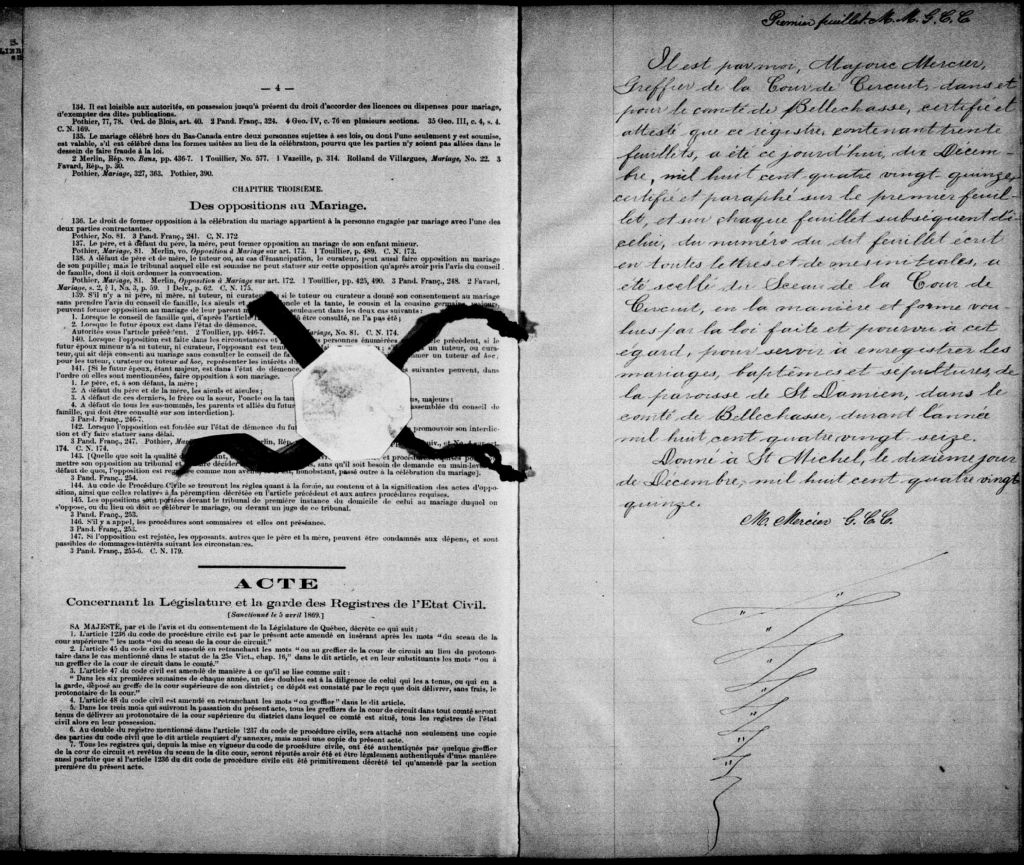 — 4 —
134. Il est loisible aux autorités, en possession jusqu'à présent du droit d'accorder des licences ou dispenses pour mariage,
d'exempter des dites publications.
Pothier, 77, 78. Ord. de Blois, art. 40. 2 Pand. Franç., 324. 4 Geo. IV, c. 76 en plusieurs sections. 35 Geo. III, c. 4, s. 4.
C. N. 169.
135. Le mariage célébré hors du Bas-Canada entre deux personnes sujettes à ses lois, ou dont l'une seulement y est soumise,
est valable, s'il est célébré dans les formes usitées au lieu de la célébration, pourvu que les parties n'y soient pas allées dans le
dessein de faire fraude à la loi.
2 Merlin, Rép. vo. Bans, pp. 436-7. 1 Touillier, No. 577. 1 Vazeille, p. 314. Rolland de Villargues, Mariage, No. 22. 3
Favard, Rép., p. 30.
Pothier, Mariage, 327, 363. Pothier, 390.
CHAPITRE TROISIÈME.
Des oppositions au Mariage.
136. Le droit de former opposition à la célébration du mariage appartient à la personne engagée par mariage avec l'une des
deux parties contractantes.
Pothier, No. 81. 3 Pand. Franç., 241. C. N. 172
137. Le père, et à défaut du père, la mère, peut former opposition au mariage de son enfant mineur.
Pothier, Mariage, 81. Merlin, vo. Opposition à Mariage sur art. 173. 1 Touillier, p. 489. C. N. 173.
138. A défaut de père et de mère, le tuteur ou, au cas d'émancipation, le curateur, peut aussi faire opposition au mariage
de son pupille; mais le tribunal auquel elle est soumise ne peut statuer sur cette opposition qu'après avoir pris l'avis du conseil
de famille, dont il doit ordonner la convocation.
Pothier, Mariage, 81. Merlin, Opposition à Mariage sur art. 172. 1 Touillier, pp. 425, 490. 3 Pand. Franç., 248. 2 Favard,
Mariage, s. 2, § 1, No. 3, p. 59. 1 Delv., p. 62. C. N. 175.
139. S'il n'y a ni père, ni mère, ni tuteur, ni curateur si le tuteur ou curateur a donné son consentement au mariage
sans prendre l'avis du conseil de famille, les aïeuls et oncle et la tante, le cousin et la cousine germaine, majeurs,
peuvent former opposition au mariage de leur parent seulement dans les deux cas suivants:
1. Lorsque le conseil de famille qui, d'après l'article être consulté, ne l'a pas été;
2. Lorsque le futur époux est dans l'état de démence.
Autorités sous l'article précédent. 2 Touillier, pp. 446-7. Mariage, No. 81. C. N. 174.
140. Lorsque l'opposition est faite dans les circonstances et personnes énumérées le précédent, si le
futur époux mineur n'a ni tuteur, ni curateur, l'opposant est un tuteur, ou cura-
teur, qui ait déjà consenti au mariage sans consulter le conseil de mer un tuteur ad hoc,
pour les tuteur, curateur ou tuteur ad hoc, représenter les intérêts
141. [Si le futur époux, étant majeur, est dans l'état de démence suivantes peuvent, dans
l'ordre où elles sont mentionnées, faire opposition à son mariage.
1. Le père, et, à son défaut, la mère;
2. A défaut du père et de la mère, les aïeuls et aïeules;
3. A défaut de ces derniers, le frère ou la sœur, l'oncle ou la majeurs;
4. A défaut de tous les sus-nommés, les parents et alliés du futur assemblée du conseil de
famille, qui doit être consulté sur son interdiction].
3 Pand. Franç., 246-7.
142. Lorsque l'opposition est fondée sur l'état de démence du promouvoir son interdic-
tion et d'y faire statuer sans délai.
3 Pand. Franç., 247. Pothier,
174. C. N. 174.
143. [Quelle que soit la qualité procédures requises pour
mettre son opposition au tribunal et décider sans qu'il soit besoin de demande en main-levée
défaut de quoi, l'opposition est regardée comme non avenue, et, nonobstant, passé outre à la célébration du mariage].
3 Pand. Franç., 254.
144. Au code de Procédure Civile se trouvent les règles quant à la forme, au contenu et à la signification des actes d'oppo-
sition, ainsi que celles relatives à la péremption décrétée en l'article précédent et aux autres procédures requises.
145. Les oppositions sont portées devant le tribunal de première instance du domicile de celui au mariage duquel on
s'oppose, ou du lieu où doit se célébrer le mariage, ou devant un juge de ce tribunal.
3 Pand. Franç., 253.
146. S'il y a appel, les procédures sont sommaires et elles ont préséance.
3 Pand. Franç., 253.
147. Si l'opposition est rejetée, les opposants, autres que le père et la mère, peuvent être condamnés aux dépens, et sont
passibles de dommages-intérêts suivant les circonstances.
3 Pand. Franç., 255-6. C. N. 179.
ACTE
Concernant la Législature et la garde des Registres de l'Etat Civil.
[Sanctionné le 5 avril 1869.]
SA MAJESTÉ, par et de l'avis et du consentement de la Législature de Québec, décrète ce qui suit:
1. L'article 1236 du code de procédure civile est par le présent acte amendé en insérant après les mots "du sceau de la
cour supérieure" les mots "ou du sceau de la cour de circuit."
2. L'article 45 du code civil est amendé en retranchant les mots "ou au greffier de la cour de circuit au lieu du protono-
taire dans le cas mentionné dans le statut de la 25e Vict., chap. 16," dans le dit article, et en leur substituants les mots "ou à
un greffier de la cour de circuit dans le comté."
3. L'article 47 du code civil est amendé de manière à ce qu'il se lise comme suit:
"Dans les six premières semaines de chaque année, un des doubles est à la diligence de celui qui les a tenus, ou qui en a
la garde, déposé au greffe de la cour supérieure de son district; ce dépôt est constaté par le reçu que doit délivrer, sans frais, le
protonotaire de la cour."
4. L'article 48 du code civil est amendé en retranchant les mots "ou greffier" dans le dit article.
5. Dans les trois mois qui suivront la passation du présent acte, tous les greffiers de la cour de circuit dans tout comté seront
tenus de délivrer au protonotaire de la cour supérieure du district dans lequel ce comté est situé, tous les registres de l'état
civil alors en leur possession.
6. Au double du registre mentionné dans l'article 1237 du code de procédure civile, sera attaché non seulement une copie
des parties du code civil que le dit article requiert d'y annexer, mais aussi une copie du présent acte.
7. Tous les registres qui, depuis la mise en vigueur du code de procédure civile, ont été authentiqués par quelque greffier
de la cour de circuit et revêtus du sceau de la dite cour, seront réputés avoir été et être légalement authentiqués d'une manière
aussi parfaite que si l'article 1236 du dit code de procédure civile eût été primitivement décrété tel qu'amendé par la section
première du présent acte.
Premier feuillet. M. M. G. C. C.
Il est par moi, Majoric Mercier,
Greffier de la Cour de Circuit, dans et
pour le comté de Bellechasse, certifié et
attesté que ce registre, contenant trente
feuillets, a été ce jourd'hui, dix Décem-
bre, mil huit cent quatre vingt quinze,
certifié et paraphé sur le premier feuil-
let, et sur chaque feuillet subséquent di-
celui, du numéro du dit feuillet écrit
en toutes lettres et de mes initiales, a
été scellé du Sceau de la Cour de
Circuit, en la manière et forme vou-
lues par la loi faite et pourvu à cet
égard, pour servir à enregistrer les
mariages, baptêmes et sépultures, de
la paroisse de St Damien, dans le
comté de Bellechasse, durant l'année
mil huit cent quatre vingt seize.
Donné à St Michel, le dixième jour
de Décembre, mil huit cent quatre vingt
quinze.
M. Mercier G. C. C.